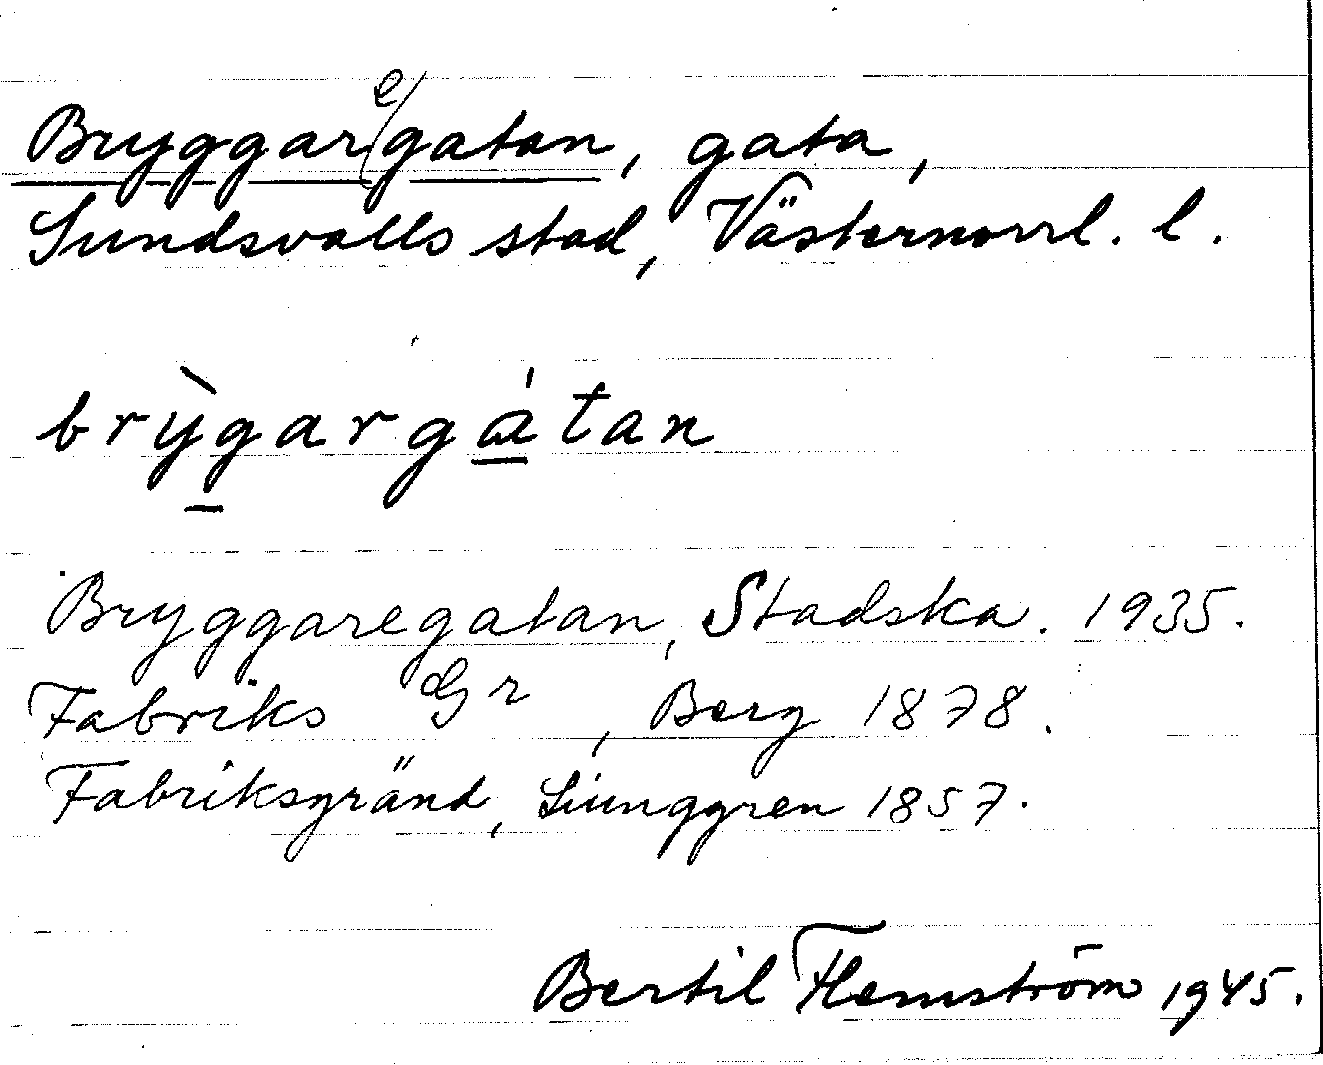 Bryggaregatan, gata,
Sundsvalls stad, Västernorrl. l.
brỳgargátan
Bryggaregatan, Stadska. 1935.
Fabriks Gr, Berg 1878.
Fabriksgränd, Ljunggren 1857.
Bertil Flemström 1945.